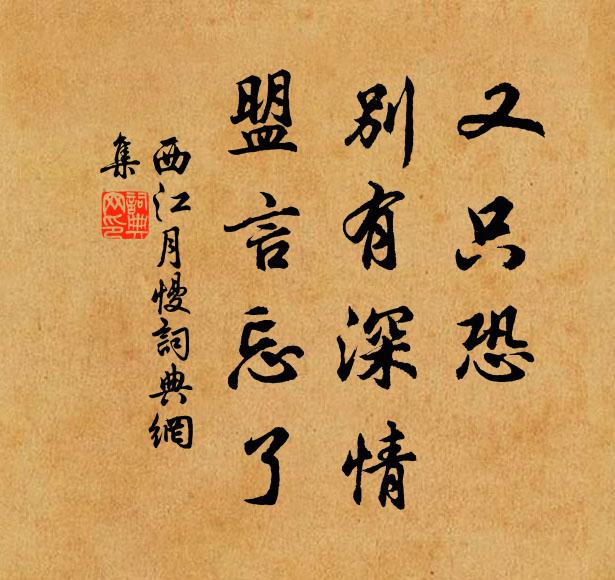 又只恐
別有深情
盟言忘了
西江月慢詞典網
集
詞典網印